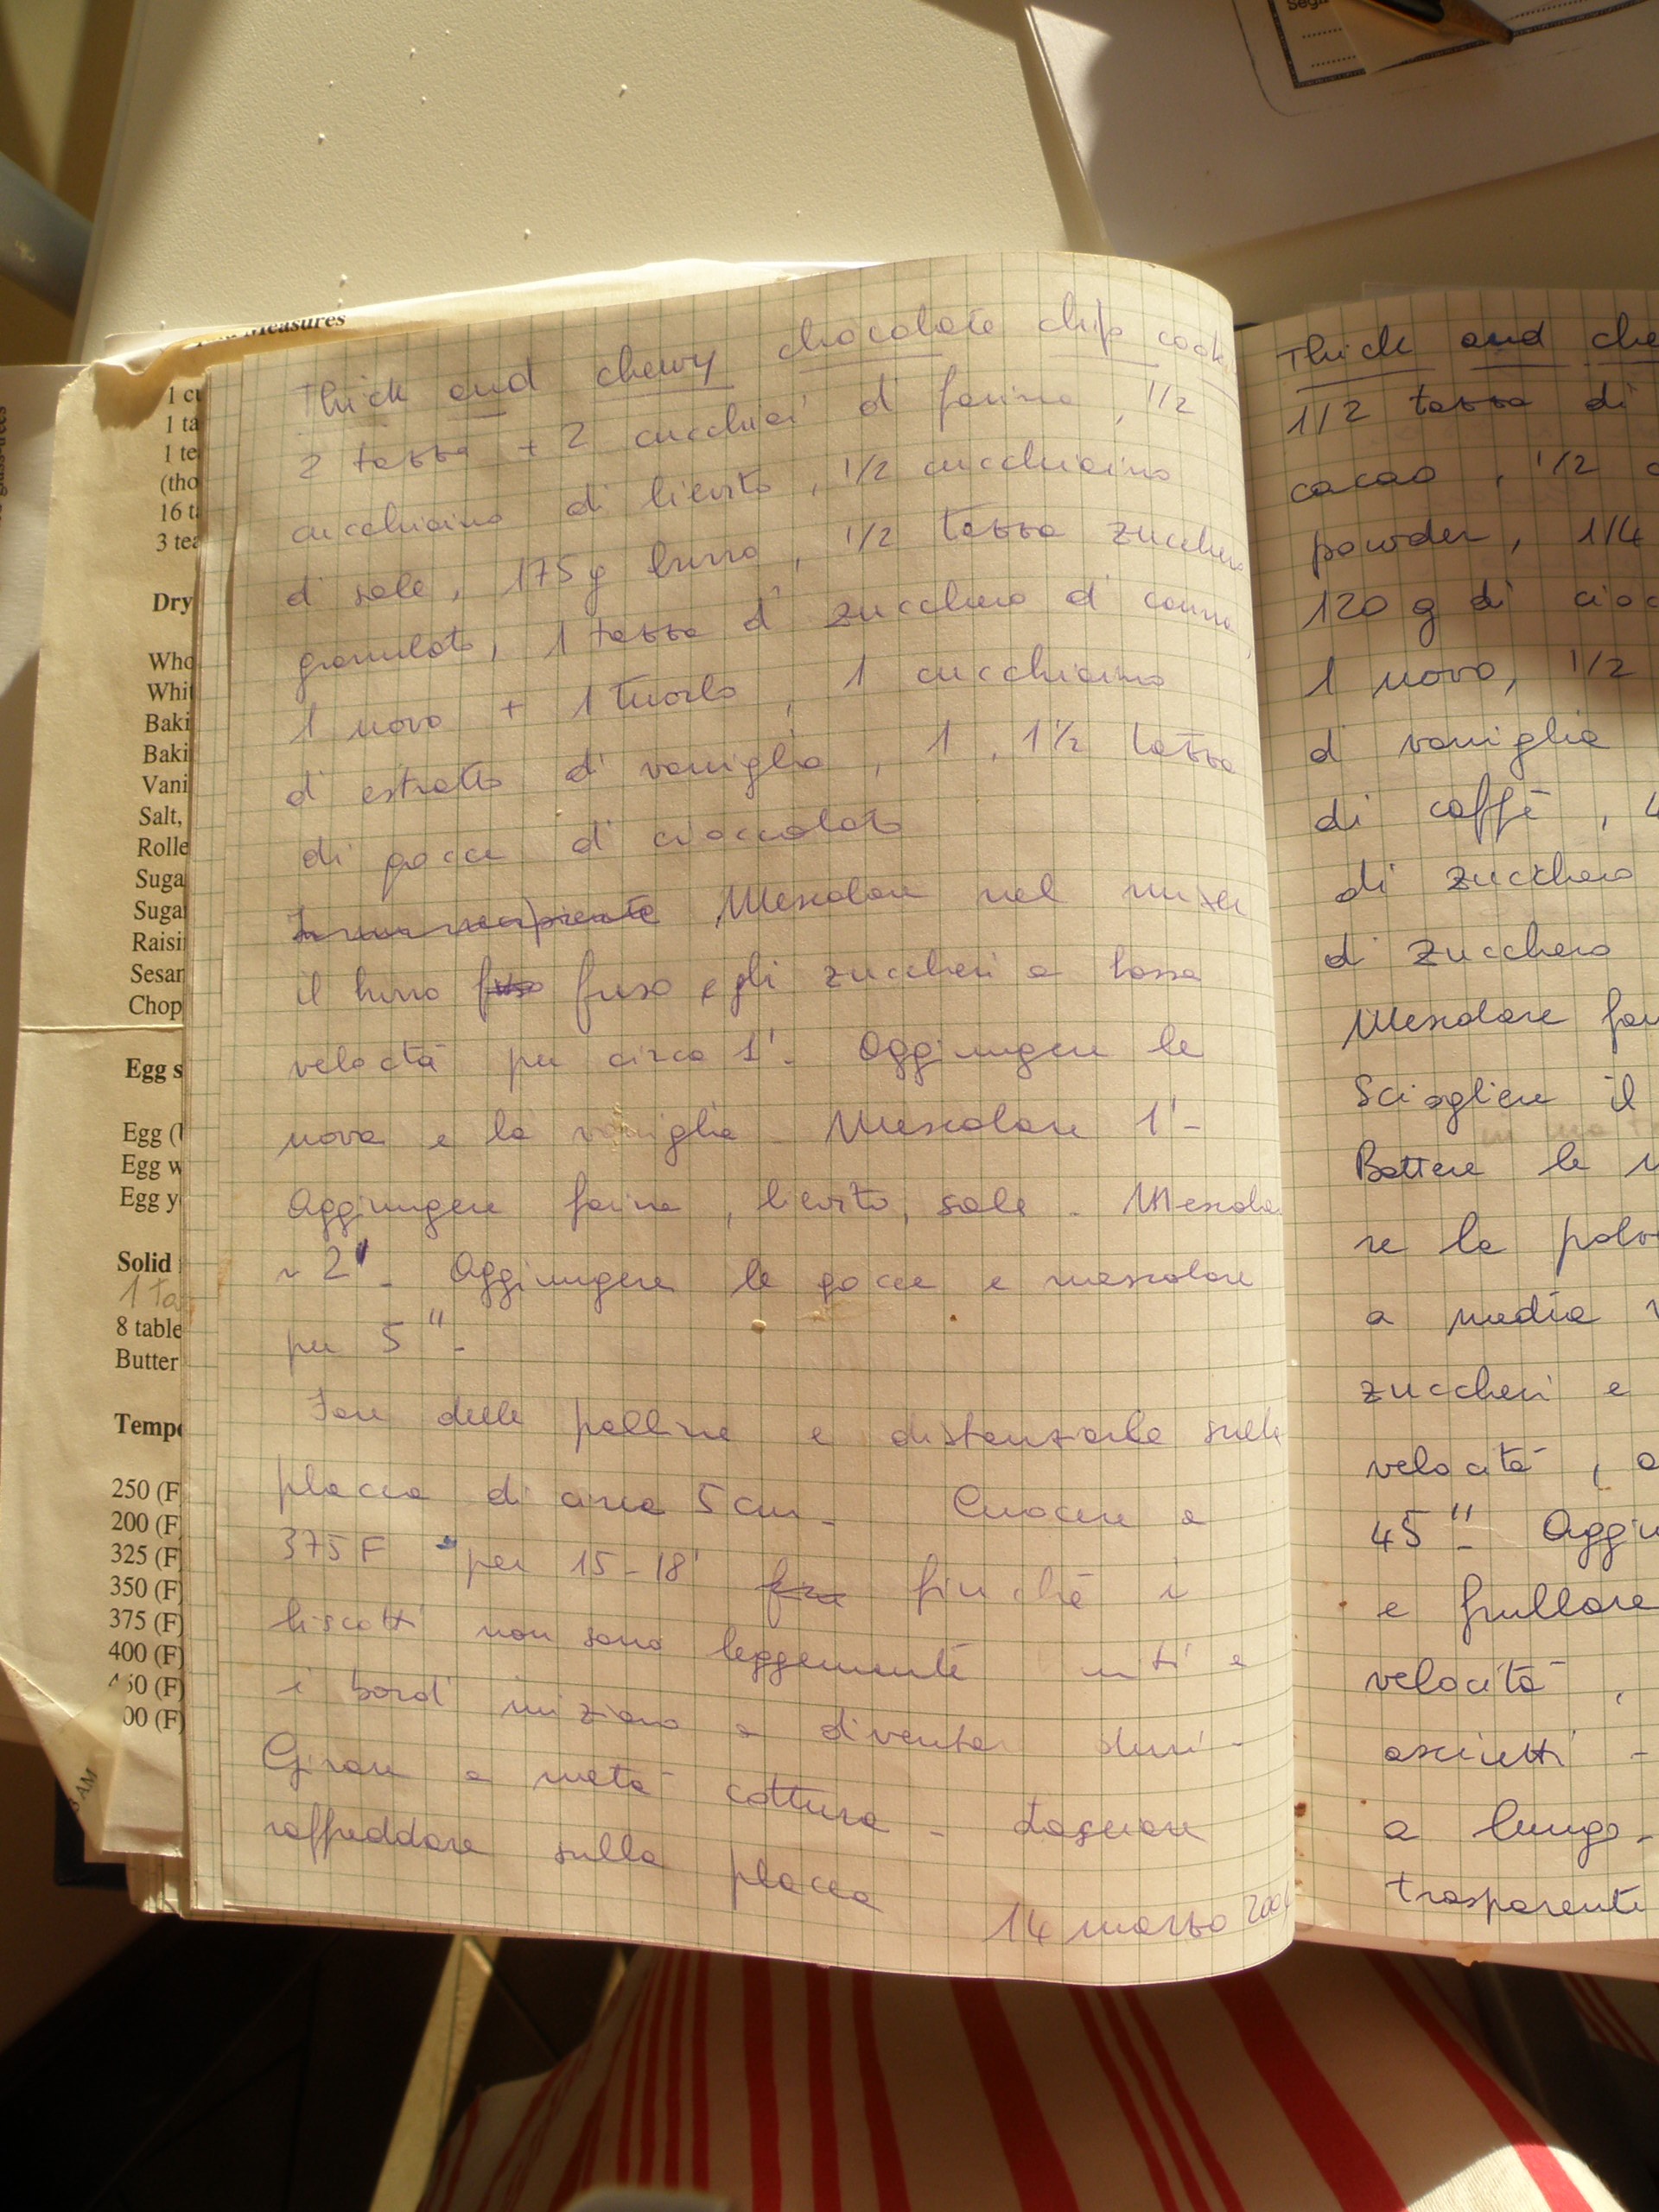 Measures
1 cu
1 ta
1 te
(tho
16 t
3 tea
Dry
Who
Whi
Baki
Baki
Vani
Salt,
Rolle
Suga
Suga
Raisi
Sesar
Chop
Egg s
Egg (
Egg w
Egg y
Solid
1 ta
8 table
Butter
Tempe
250 (F
200 (F
325 (F)
350 (F)
375 (F)
400 (F)
50 (F)
00 (F)
AM
Thick and chewy chocolate chip cook
2 tazza + 2 cucchiai di farina, 1/2
cucchiaino di lievito, 1/2 cucchiaino
di sale, 175 g burro, 1/2 tazza zucchero
granulato, 1 tazza di zucchero di canna,
1 uovo + 1 tuorlo, 1 cucchiaino
di estratto di vaniglia, 1, 1 1/2 tazza
di gocce di cioccolato
In un recipiente Mescolare nel mixer
il burro fuso fuso e gli zuccheri a bassa
velocità per circa 1'. Aggiungere le
uova e la vaniglia. Mescolare 1'-
Aggiungere farina, lievito, sale - Mescola
2' - Aggiungere le gocce e mescolare
per 5" -
Fare delle palline e distanziarle sulla
placca di circa 5 cm - Cuocere a
375 F per 15-18' finchè i
biscotti non sono leggermente e
i bordi iniziano a diventar duri -
Girare a metà cottura - Lasciare
raffreddare sulla placca
14 marzo 200
Thick and che
1/2 tazza di
cacao, 1/2 c
powder, 1/4
120 g di cioc
1 uovo, 1/2
di vaniglia
di caffè, 4
di zucchero
di zucchero
Mescolare far
Sciogliere il
Battere le u
re la polve
a media v
zuccheri e
velocità, a
45" - Aggiu
e frullare
velocità,
asciutti -
a lungo -
trasparente